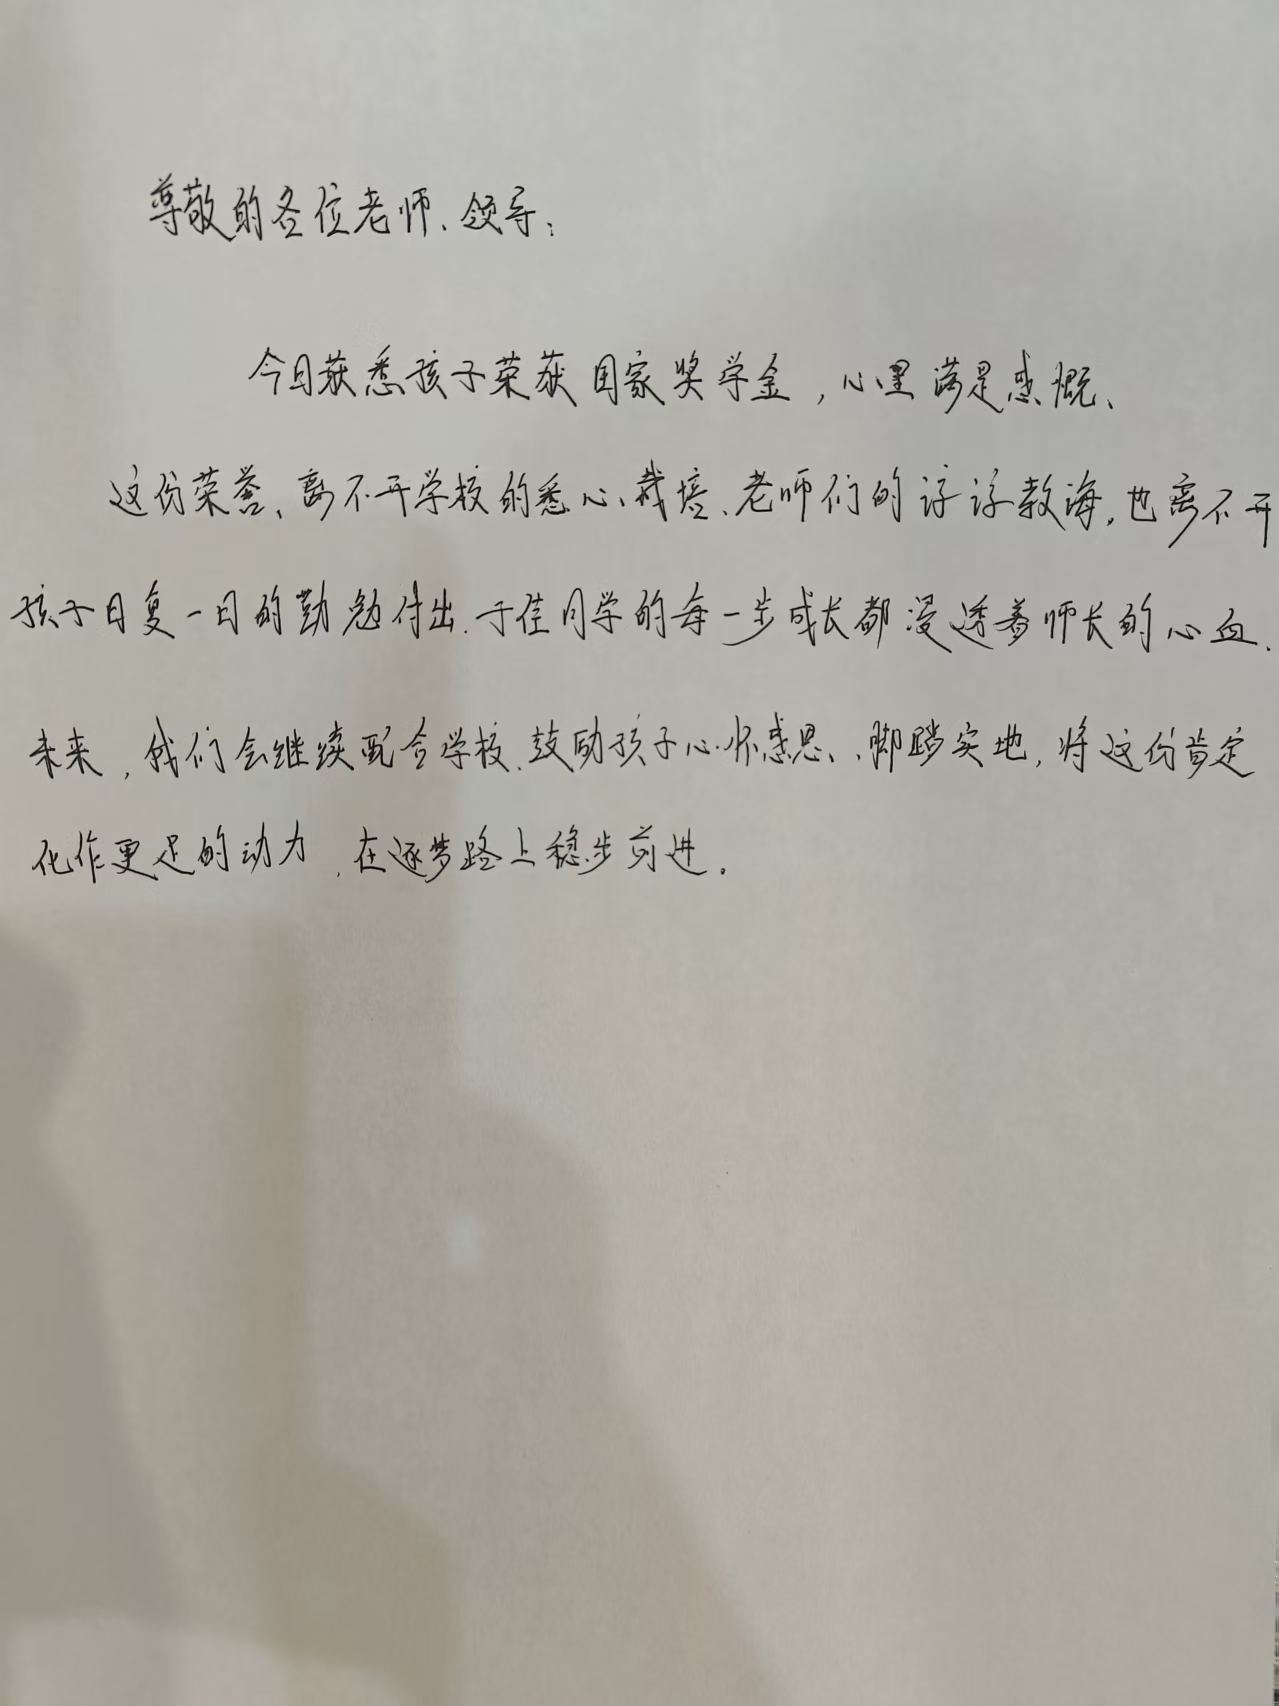 尊敬的各位老师、领导：
今日获悉孩子荣获国家奖学金，心里满是感慨、
这份荣誉、离不开学校的悉心栽培、老师们的谆谆教诲，也离不开
孩子日复一日的勤勉付出.于佳同学的每一步成长都浸透着师长的心血.
未来，我们会继续配合学校.鼓励孩子心怀感恩、脚踏实地，将这份肯定
化作更足的动力，在逐梦路上稳步前进。